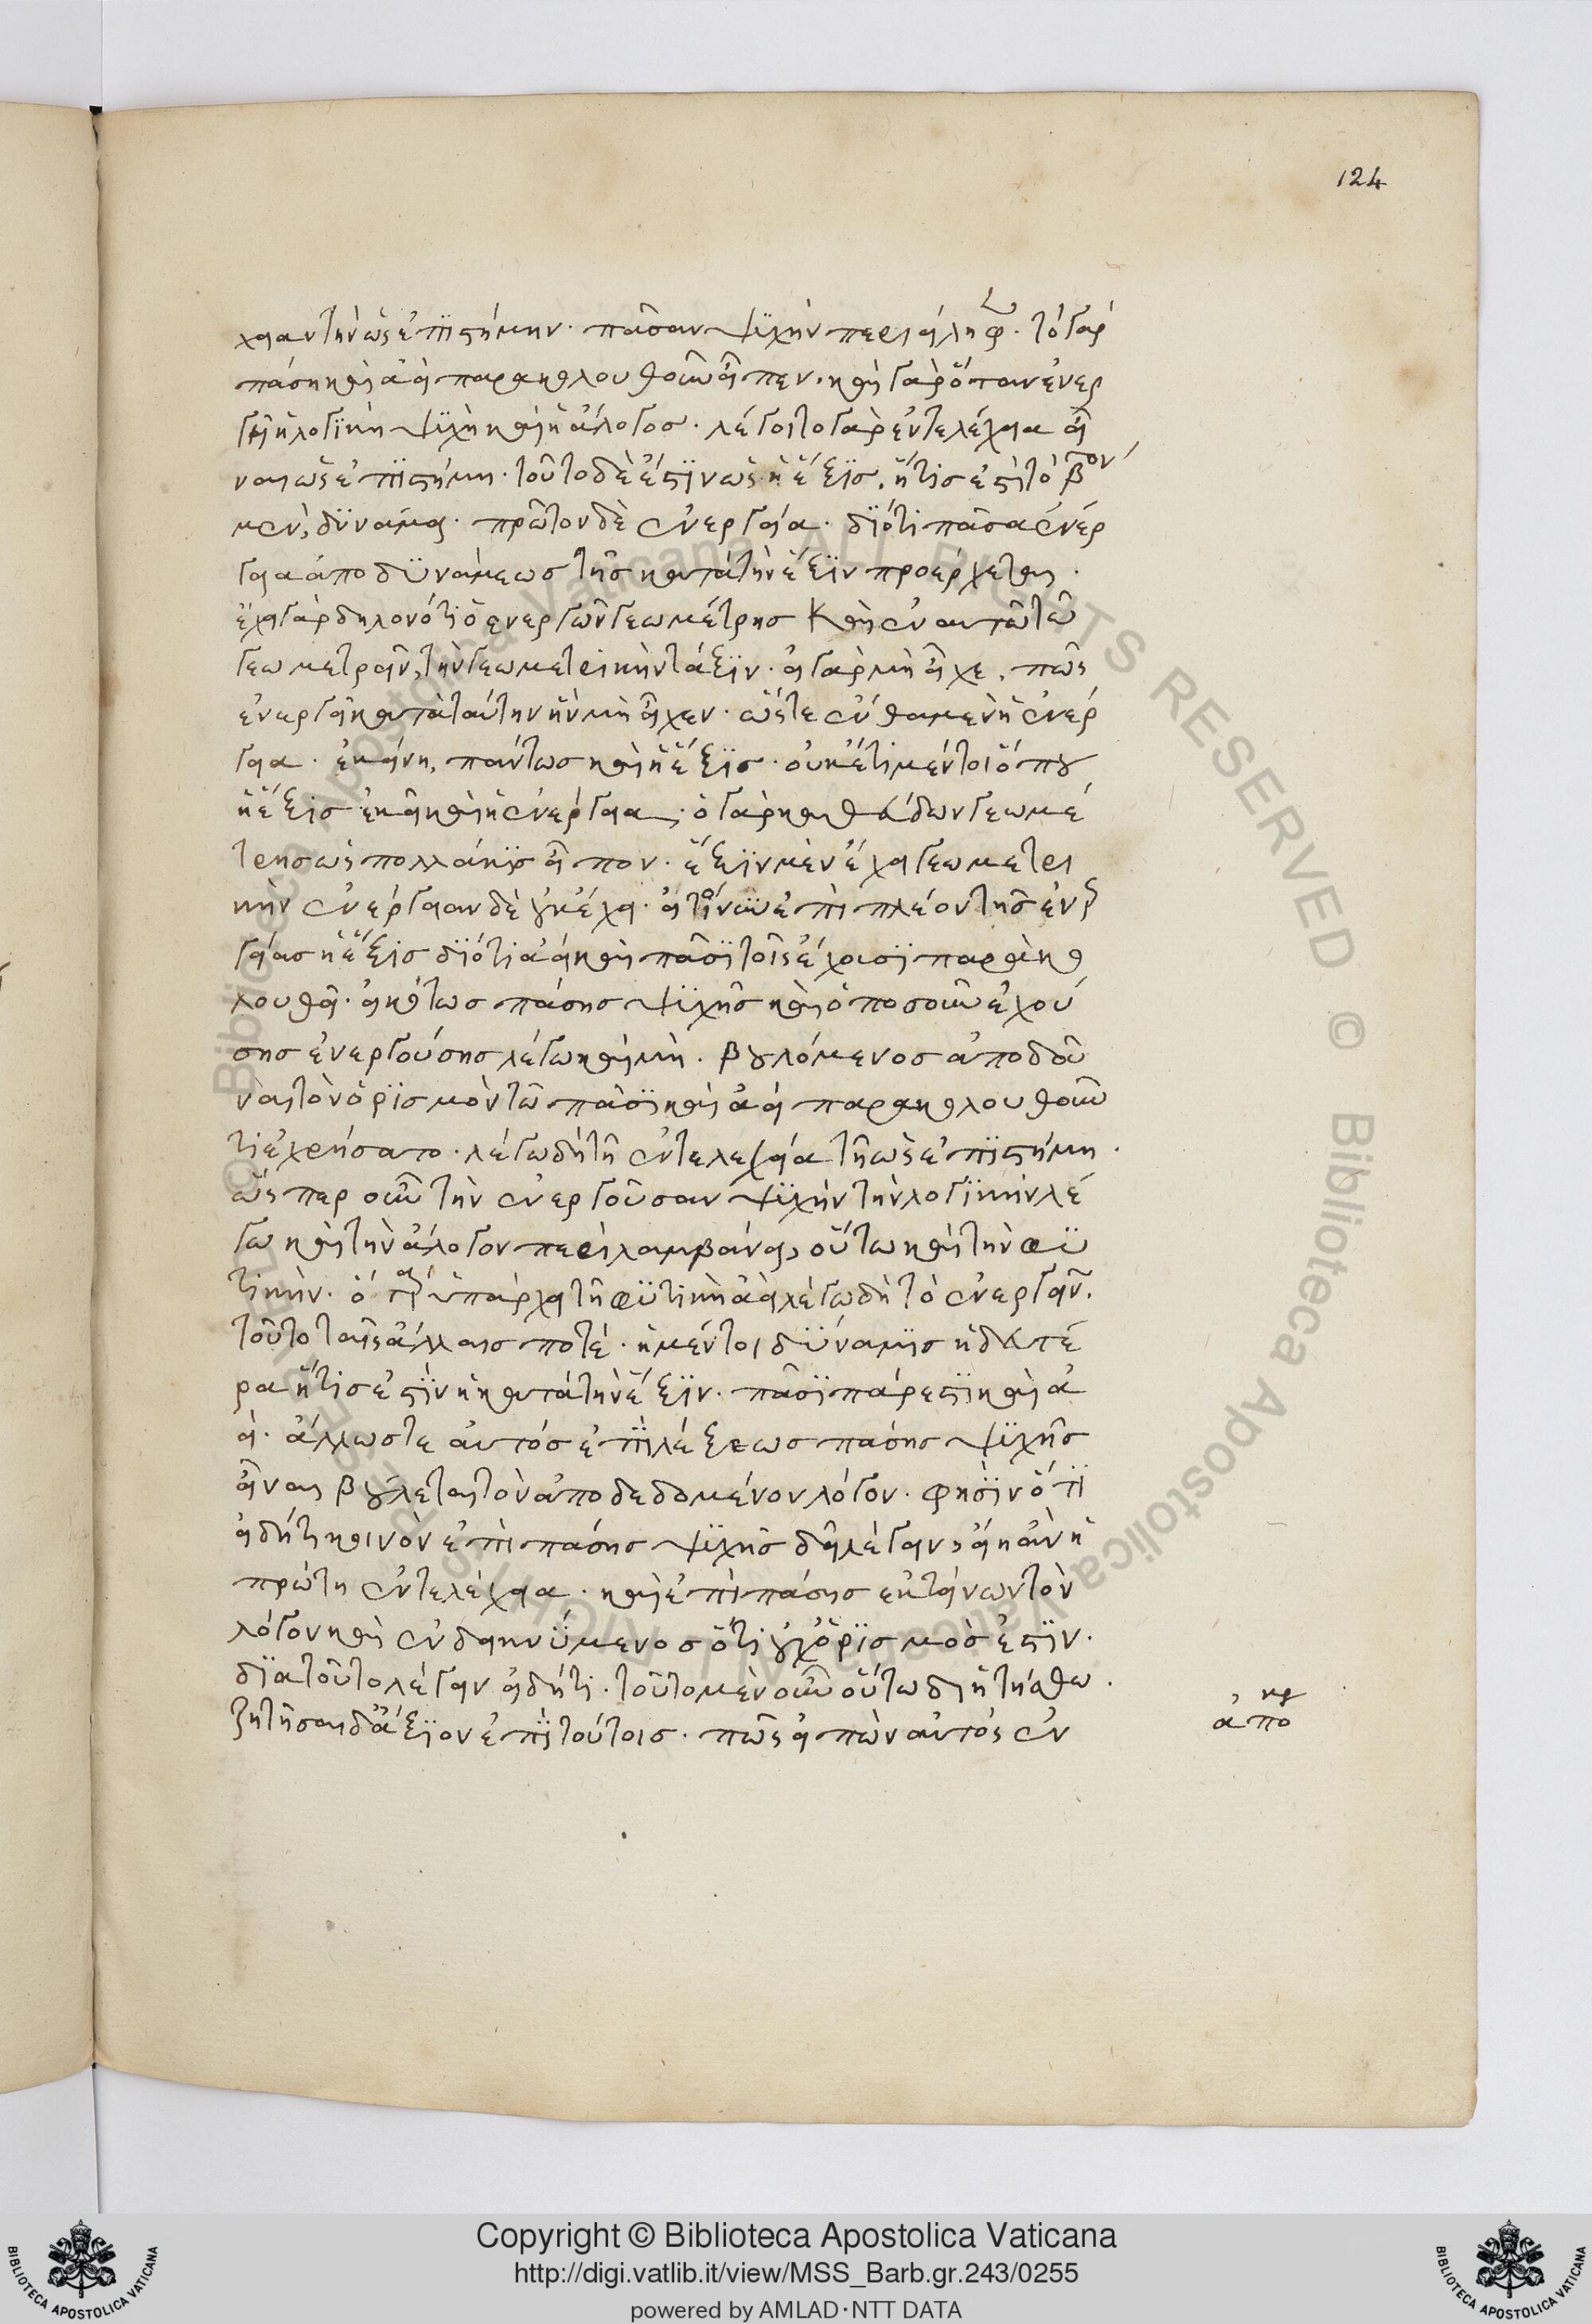 124
χειαν τὴν ὡς ἐπιστήμην· πᾶσαν ψυχὴν περιείληφ· τὸ γὰρ
πάσῃ καὶ ἀεὶ παρακολουθοῦν εἶπεν· καὶ γὰρ ὅταν ἐνερ
γῇ ἡ λογικὴ ψυχὴ καὶ ἡ ἄλογος· λέγοιτο γὰρ ἐντελέχεια εἶ
ναι ὡς ἐπιστήμη· τοῦτο δὲ ἐστὶν ὡς ἡ ἕξις, ἥτις ἐστὶ τὸ βον
μὲν, δυνάμει· πρῶτον δὲ ἐνεργεία· διότι πᾶσα ἐνέρ
γεια ἀπο δυνάμεως τῆς κατὰ τὴν ἕξιν προέρχεται·
ἔχει γὰρ δηλονότι ὁ ενεργῶν γεωμέτρης καὶ ἐν αυτῶ τῶ
γεωμετρεῖν, τὴν γεωμετρικὴν τάξιν· εἰ γὰρ μὴ εἶχε, πῶς
ἐνεργεῖ κατὰ ταύτην ἣν μὴ εἶχεν· ὥστε ἔνθα μὲν ἡ ἐνέρ
γεια· ἐκείνη, πάντως καὶ ἡ ἕξις· οὐκέτι μέντοι ὅπου
ἡ ἕξις ἐκεῖ καὶ ἡ ἐνέργεια· ὁ γὰρ καθεύδων γεωμέ
τρης ὡς πολλάκις εἶπον· ἕξιν μὲν ἔχει γεωμετρι
κὴν ἐνέργειαν δὲ οὐκ ἔχει· εἰ τοίνυν ἐπὶ πλέον τῆς ἐνερ
γείας ἡ ἕξις διότι ἀεὶ καὶ πᾶσι τοῖς ἔχουσι παρακο
λουθεῖ· εἰκότως πάσης ψυχῆς καὶ ὁποσοῦν ἐχού
σης ἐνεργούσης λέγω καὶ μὴ· βουλόμενος ἀποδοῦ
ναι τὸν ὁρισμὸν τῶ πᾶσι καὶ ἀεὶ παρακολουθοῦν
τι ἐχρήσατο· λέγω δὴ τῇ ἐντελεχεία τῇ ὡς ἐπιστήμη·
ὥσπερ οὖν τὴν ἐνεργοῦσαν ψυχὴν τὴν λογικὴν λέ
γω καὶ τὴν ἄλογον περιλαμβάνει, οὕτω καὶ τὴν φυ
τικήν· ὅπερ ὑπάρχει τῇ φυτικῇ ἀεὶ λέγω δὴ τὸ ἐνεργεῖν·
τοῦτο ταῖς ἄλλαις ποτέ· ἡ μέντοι δύναμις ἡ δευτέ
ρα ἥτις ἐστὶν ἡ κατὰ τὴν ἕξιν· πᾶσι πάρεστι καὶ ἀ
εί· ἄλλωστε αὐτὸς ἐπὶ λέξεως πάσης ψυχῆς
εἶναι βούλεται τὸν ἀποδεδομένον λόγον· φησὶν ὅτι
εἰ δή τι κοινὸν ἐπὶ πάσης ψυχῆς δεῖ λέγειν, εἴη ἂν ἡ
πρώτη ἐντελέχεια· καὶ ἐπὶ πάσης εκτείνων τὸν
λόγον καὶ ἐνδεικνύμενος ὅτι οὐχ ὁρισμὸς ἐστὶν·
διὰ τοῦτο λέγειν εἰ δή τι· τοῦτο μὲν οὖν οὕτω διῃτήσθω·
ζητῆσαι δ' ἄξιον ἐπὶ τούτοις· πῶς εἰπὼν αὐτὸς ἐν
ἀπο
Copyright © Biblioteca Apostolica Vaticana
http://digi.vatlib.it/view/MSS_Barb.gr.243/0255
powered by AMLAD·NTT DATA